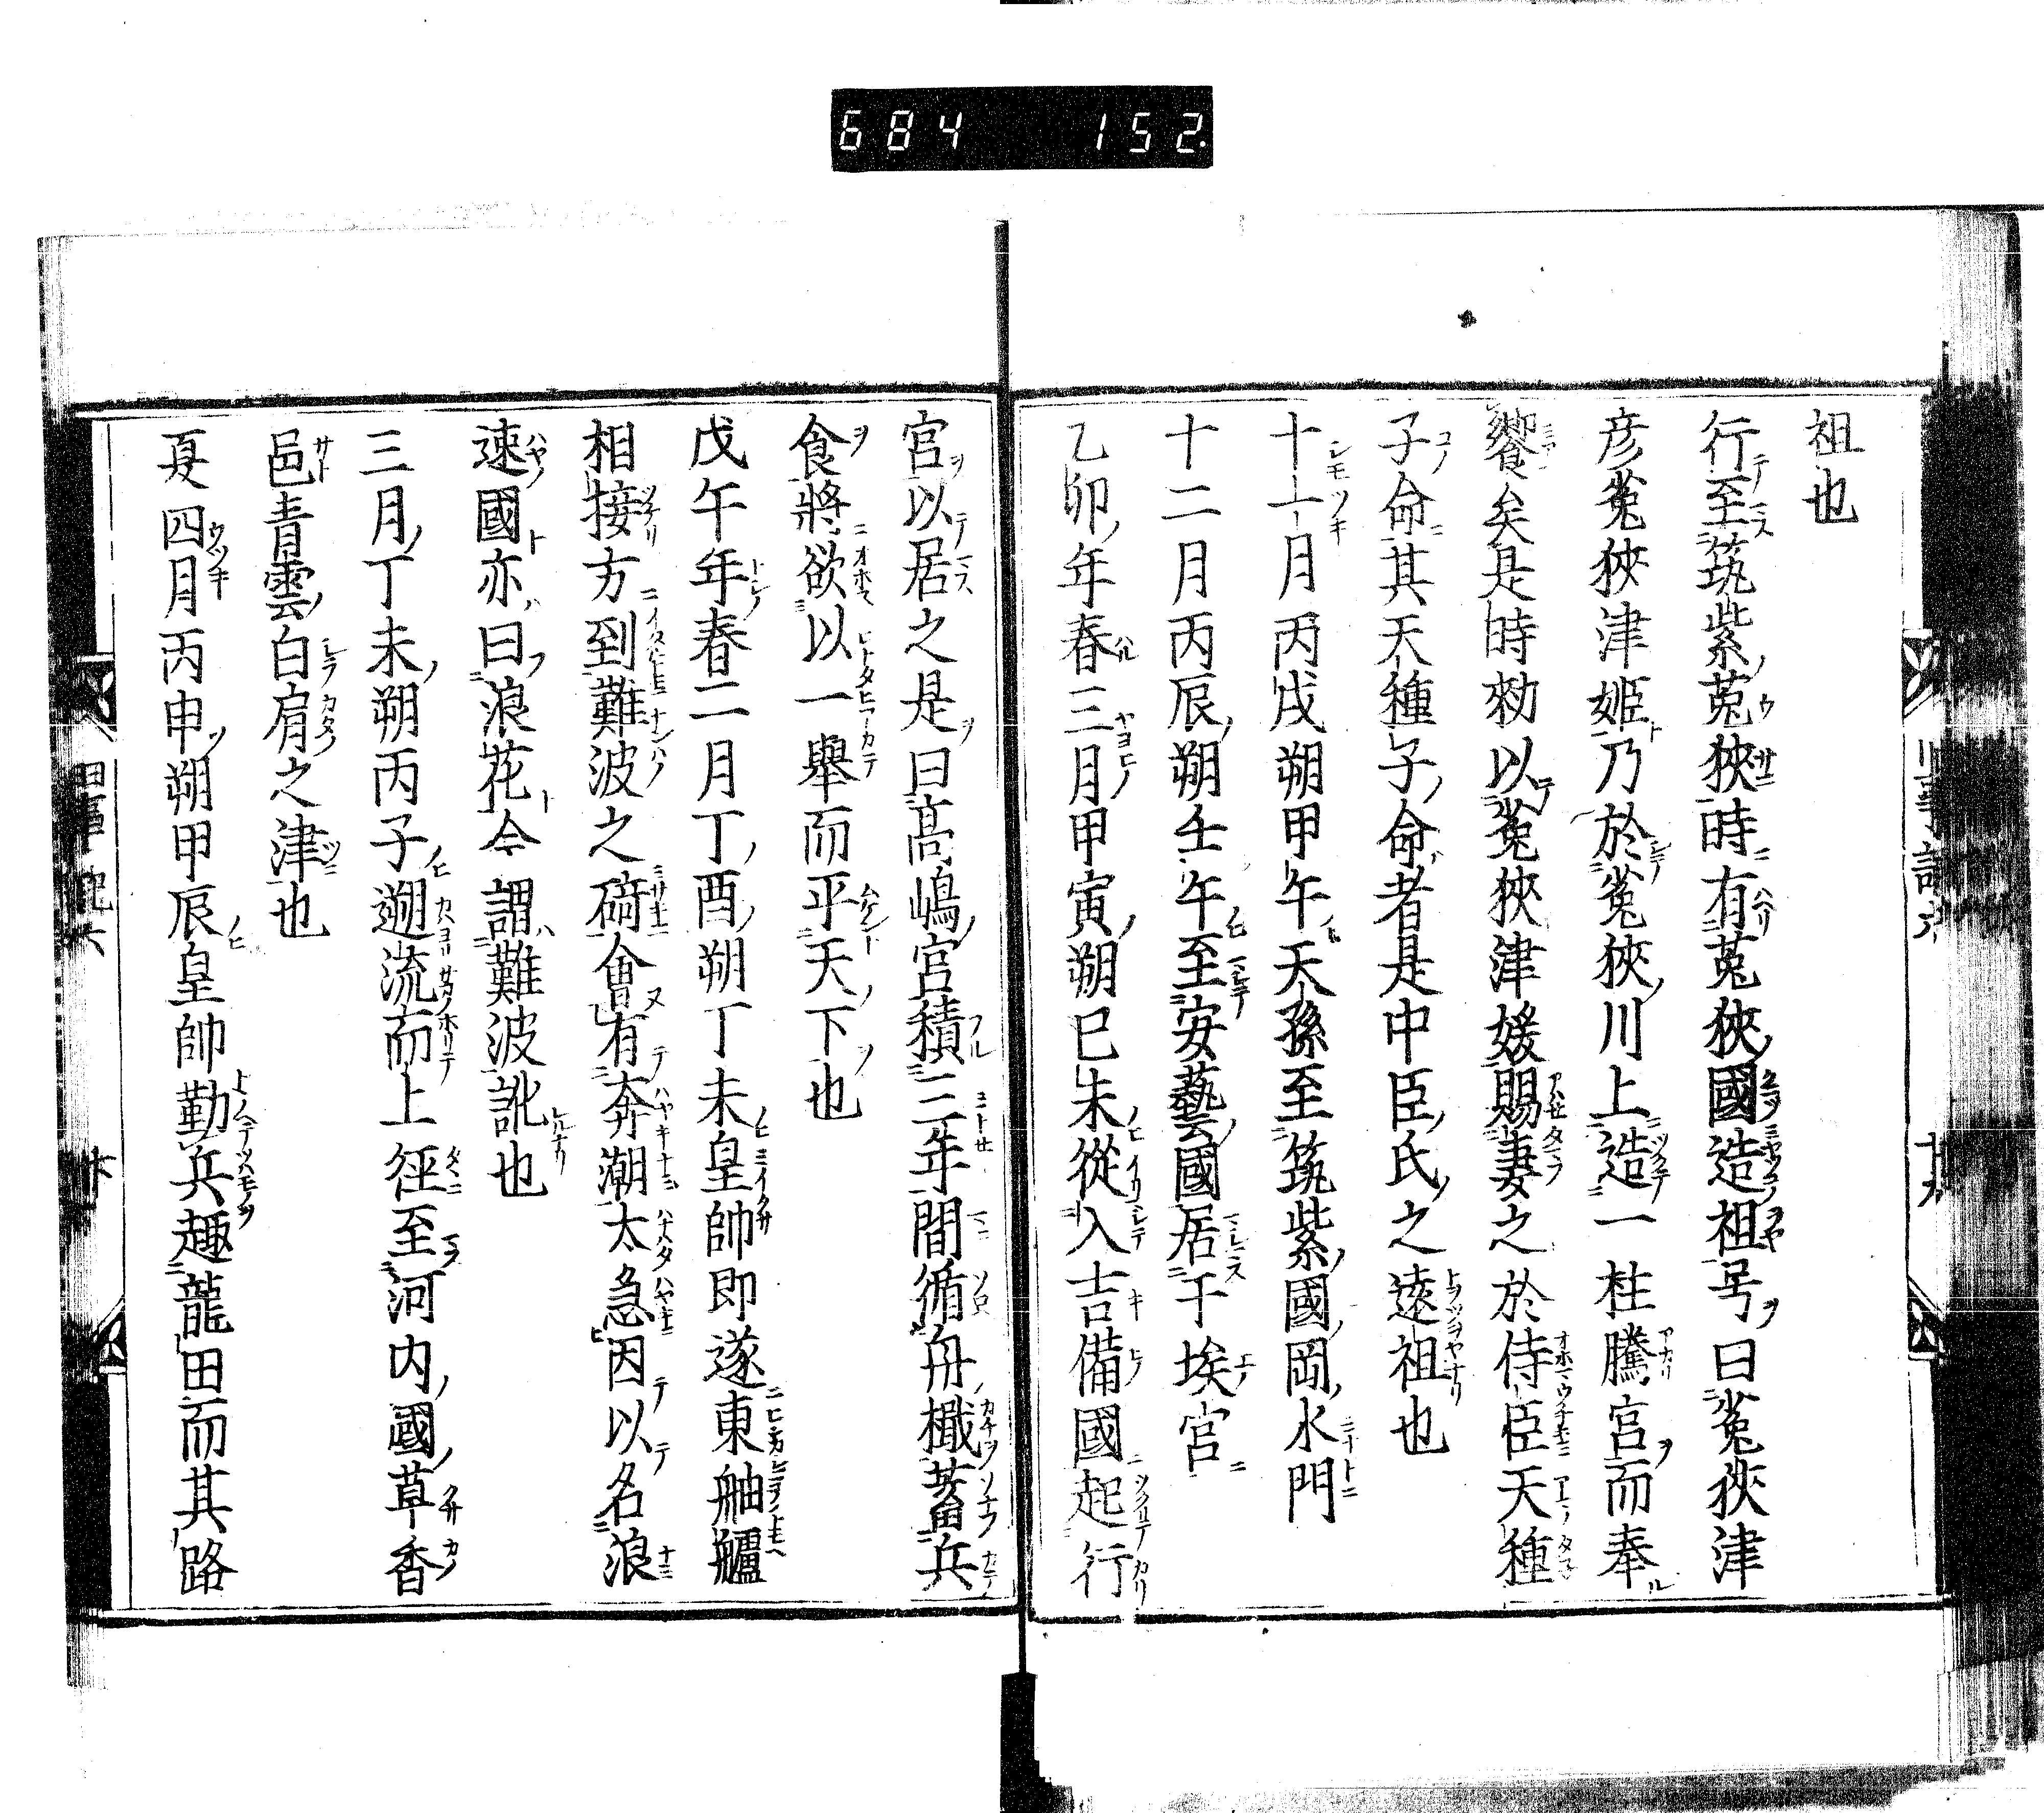 684 152
祖也
行至筑紫菟狹時有菟狹國造祖号曰菟狹津
彦菟狹津姬乃於菟狹川上造一柱騰宮而奉
饗矣是時勑以菟狹津媛賜妻之於侍臣天種
子命其天種子命者是中臣氏之遠祖也
十一月丙戌朔甲午天孫至筑紫國岡水門
十二月丙辰朔壬午至安藝國居于埃宮
乙卯年春三月甲寅朔已未從入吉備國起行
宮以居之是曰髙嶋宮積三年間循舟檝蓄兵
食將欲以一舉而平天下也
戊午年春二月丁酉朔丁未皇帥即遂東舳艫
相接方到難波之碕會有奔潮太急因以名浪
速國亦曰浪花今謂難波訛也
三月丁未朔丙子遡流而上徑至河内國草香
邑青雲白肩之津也
夏四月丙申朔甲辰皇帥勒兵趣龍田而其路